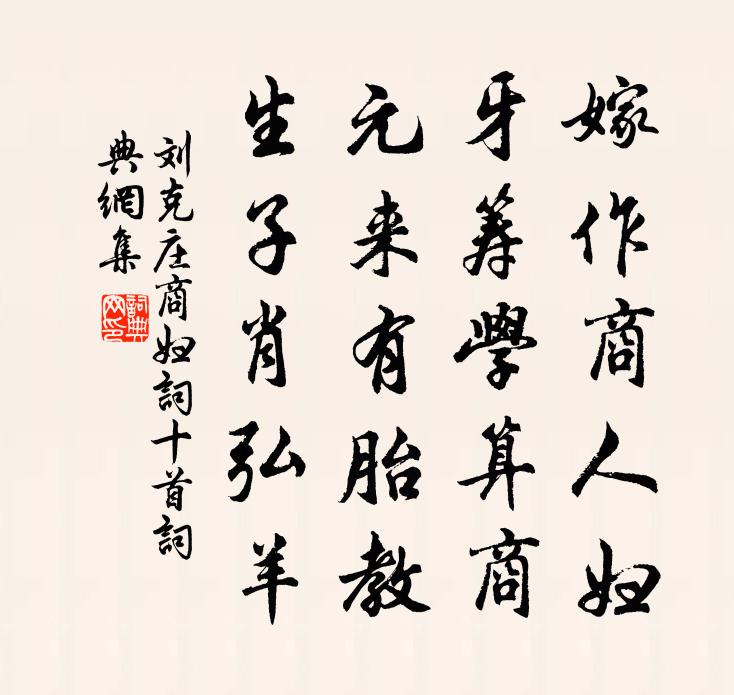 嫁作商人妇
牙筹學算商
元来有胎教
生子肖弘羊
刘克庄商妇詞十首詞
典網集
詞典
网印